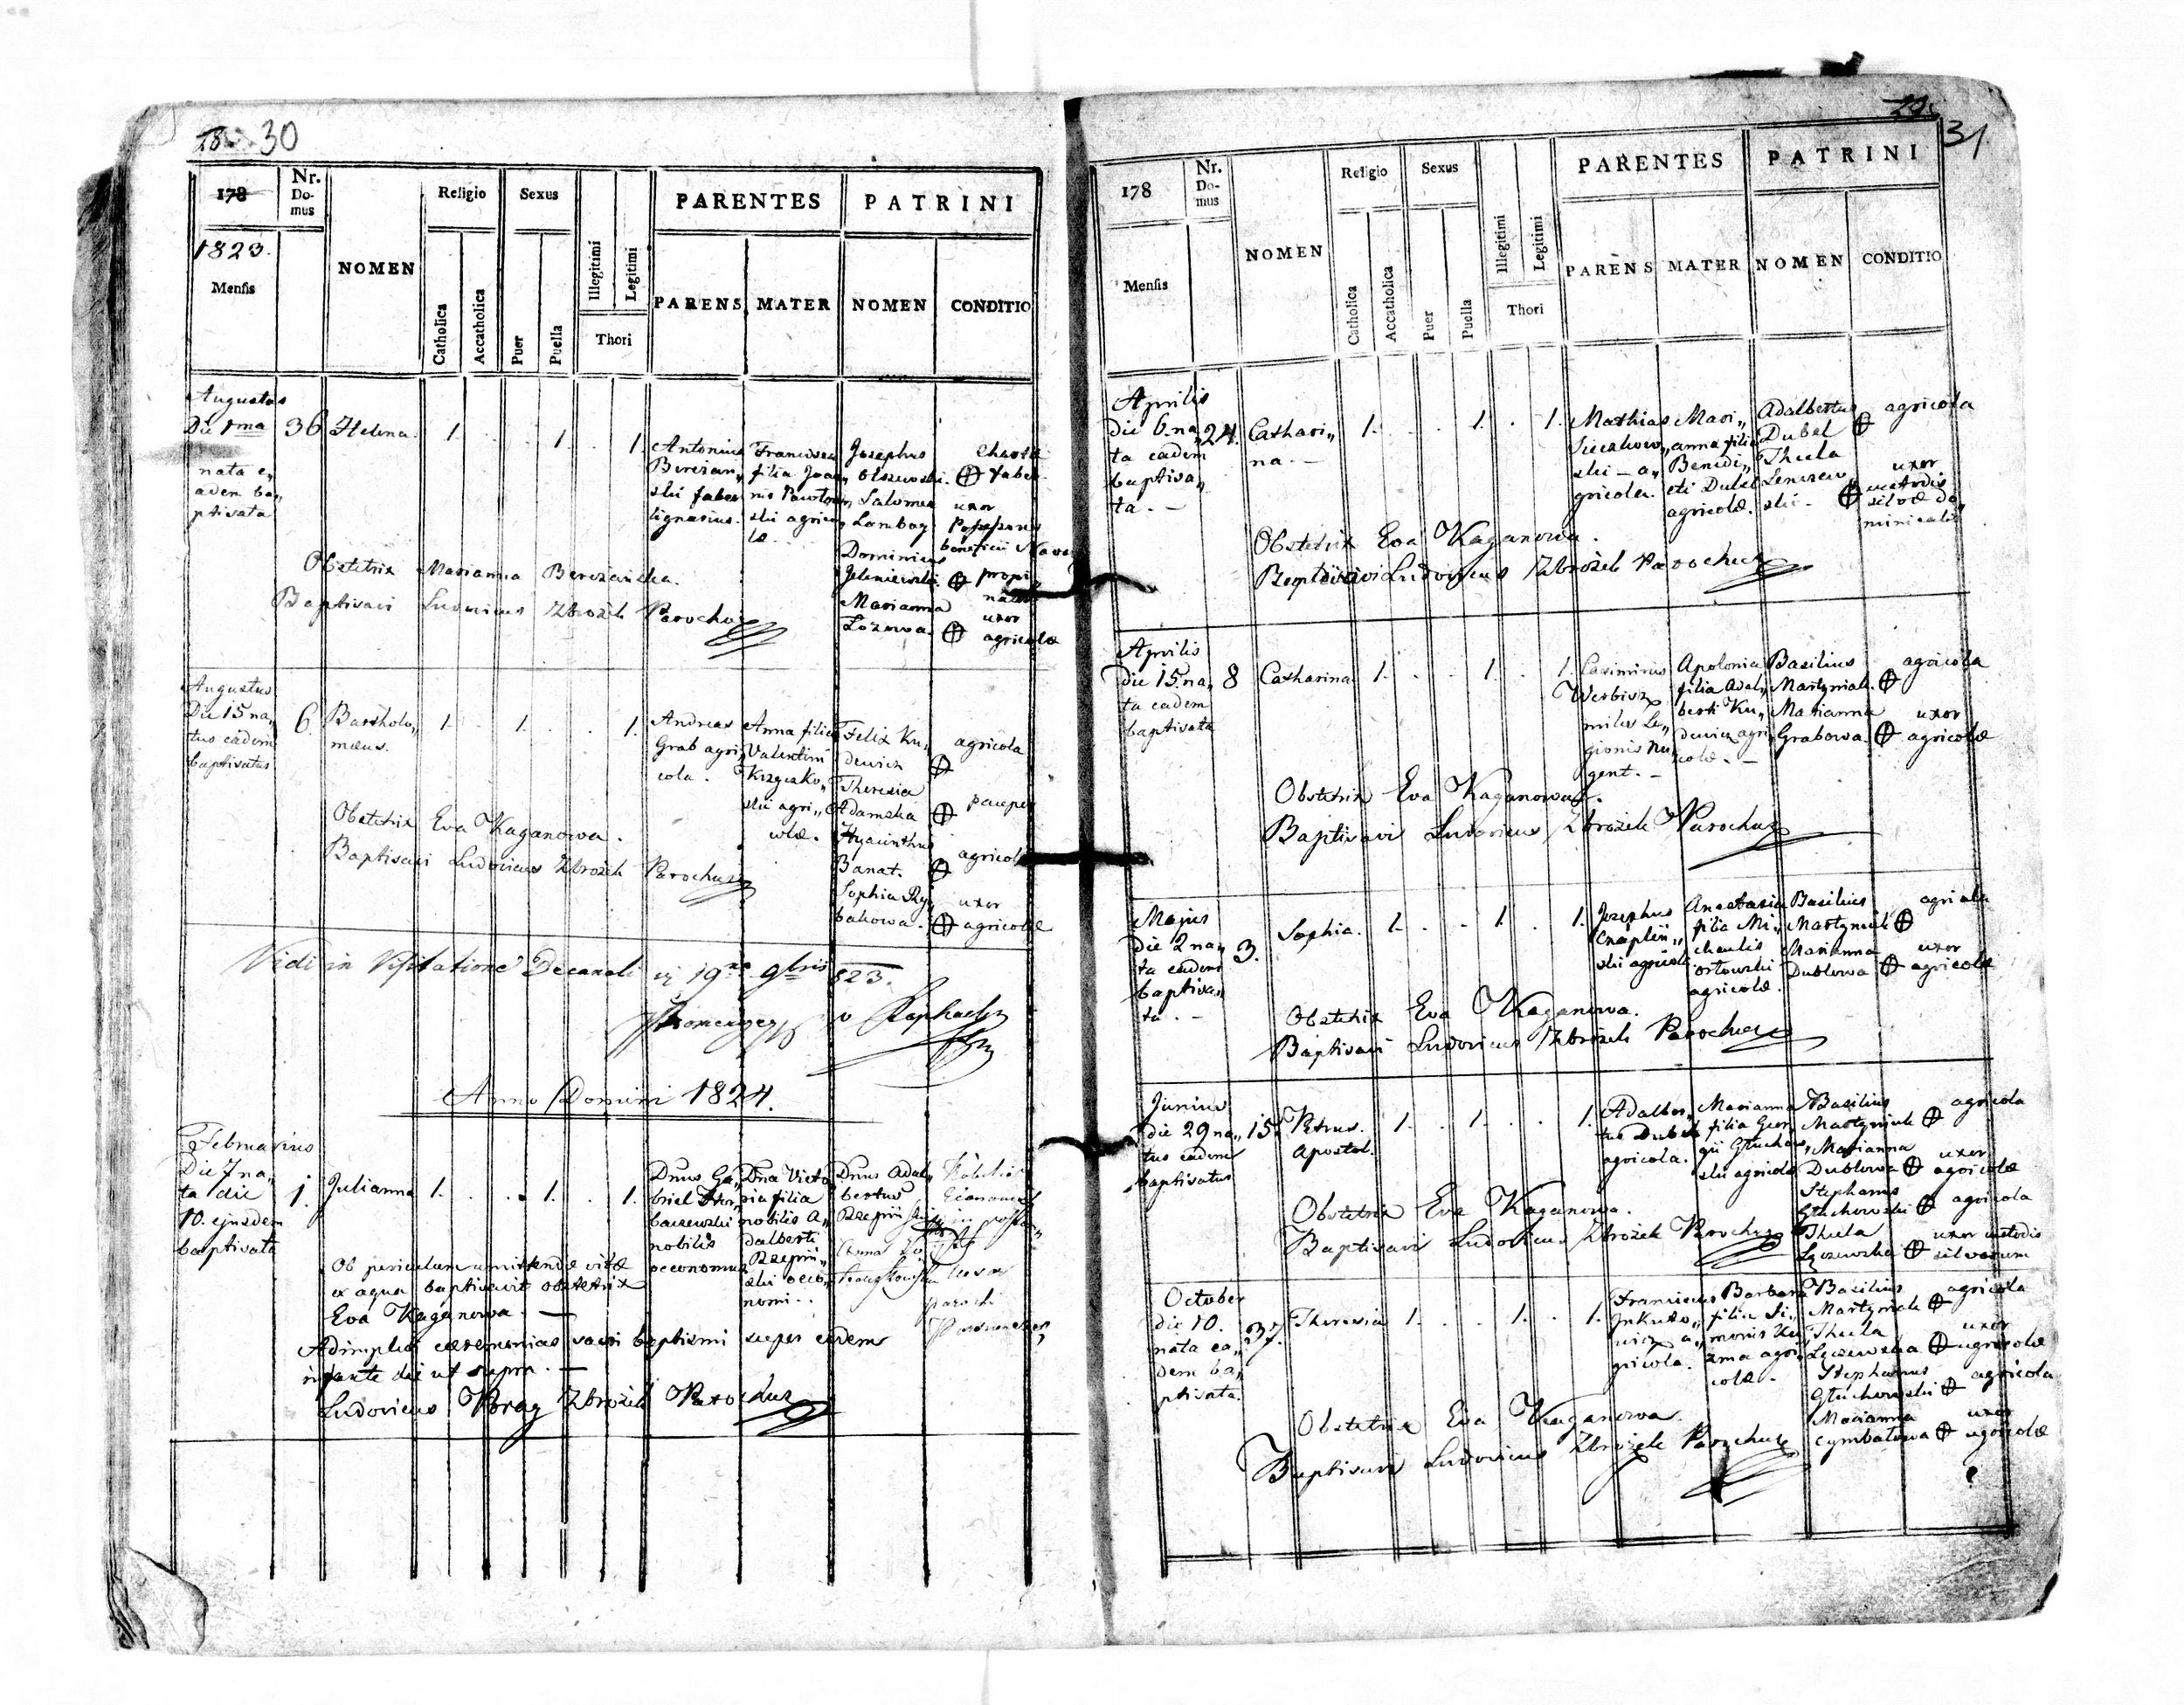 28 30
178
Nr. Domus
NOMEN
Religio
Sexus
Illegitimi
Legitimi
PARENTES
PATRINI
1823.
Mensis
Catholica
Accatholica
Puer
Puella
Thori
PARENS
MATER
NOMEN
CONDITIO
Augustus
Die 1ma
nata e„
adem ba„
ptisata
36
Helena.
1. . . 1. . 1.
Antonius
Bereżan„
ski faber
lignarius.
Francisca
filia Joan„
nis Pawłow„
ski agrico„
læ.
Josephus
Olszewski.
Salomea
Lambog
Dominicus
Jeleniewski.
Marianna
Łozowa.
faber
uxor
propi„
nator
uxor
agricolæ
Obstetrix Marianna Bereżańska.
Baptisavi Ludovicus Zbrożek Parochus
Augustus
Die 15 na„
tus eadem
baptisatus
6.
Bartholo„
mæus.
1. . 1. . . 1.
Andreas
Grab agri„
cola.
Anna filia
Valentini
Krzyczko„
ski agri„
colæ.
Felix Ku„
dewicz
Theresia
Adamska
Hyacinthus
Banat.
Sophia Ry„
bakowa.
agricola
pauper
agricola
uxor
agricolæ
Obstetrix Eva Kaganowa.
Baptisavi Ludovicus Zbrożek Parochus
Vidi in Visitatione Decanali 19na 9bris 823.
Anno Domini 1824.
Februarius
Die 7 na„
ta die
10. ejusdem
baptisata
1.
Julianna
1. . . 1. . 1.
Dnus Ga„
briel
nobilis
oeconomus
Dna Victo„
ria filia
nobilis A„
dalberti
Rzepiń„
ski oeco„
nomi.
Dnus Adal„
bertus
Anna
uxor
Ob periculum amittendæ vitæ
ex aqua baptisavit obstetrix
Eva Kaganowa. —
Adimplevi cæremonias sacri baptismi super eadem
infante die ut supra. —
Ludovicus Zbrożek Parochus
29
31
178
Nr. Domus
NOMEN
Religio
Sexus
Illegitimi
Legitimi
PARENTES
PATRINI
Mensis
Catholica
Accatholica
Puer
Puella
Thori
PARENS
MATER
NOMEN
CONDITIO
Aprilis
die 6. na„
ta eadem
baptisa„
ta. —
24.
Cathari„
na. —
1. . . 1. . 1.
Mathias
ski — a„
gricola.
Mari„
anna filia
Benedi„
cti Dubel
agricolæ.
Adalbertus
Dubel
Thecla
ski.
agricola
uxor
custodis
silvæ do„
minicalis
Obstetrix Eva Kaganowa.
Baptisavi Ludovicus Zbrożek Parochus
Aprilis
die 15. na„
ta eadem
baptisata
8
Catharina
1. . . 1. . 1.
Casimirus
Werbisz
miles Le„
gionis Nu„
gent. —
Apolonia
filia Adal„
berti Ku„
dewicz agri„
colæ. —
Basilius
Martyniak.
Marianna
Grabowa.
agricola
uxor
agricolæ
Obstetrix Eva Kaganowa.
Baptisavi Ludovicus Zbrożek Parochus
Majus
die 2 na„
ta eadem
baptisa„
ta. —
3.
Sophia.
1. . . 1. . 1.
Josephus
Czapliń„
ski agricola.
Anastasia
filia Mi„
chaelis
Ostowski
agricolæ.
Basilius
Martyniak
Marianna
Dublowa
agricola
uxor
agricolæ
Obstetrix Eva Kaganowa.
Baptisavi Ludovicus Zbrożek Parochus
Junius
die 29 na„
tus eadem
baptisatus
15.
Petrus.
Apostol.
1. . 1. . . 1.
Adalber„
tus Dubel
agricola.
Marianna
filia Geor„
gii Głuchow„
ski agricolæ
Basilius
Martyniak
Marianna
Dublowa
Stephanus
Głuchowski
Thecla
Łęczewska
agricola
uxor
agricolæ
agricola
uxor custodis
silvarum
Obstetrix Eva Kaganowa.
Baptisavi Ludovicus Zbrożek Parochus
October
die 10.
nata ea„
dem ba„
ptisata.
37.
Theresia
1. . . 1. . 1.
Franciscus
Jnkuto„
wicz a„
gricola.
Barbara
filia Si„
monis Ku„
zma agri„
colæ.
Basilius
Martyniak
Thecla
Łęczewska
Stephanus
Głuchowski
Marianna
Cymbałowa
agricola
uxor
agricolæ
agricola
uxor
agricolæ
Obstetrix Eva Kaganowa.
Baptisavi Ludovicus Zbrożek Parochus